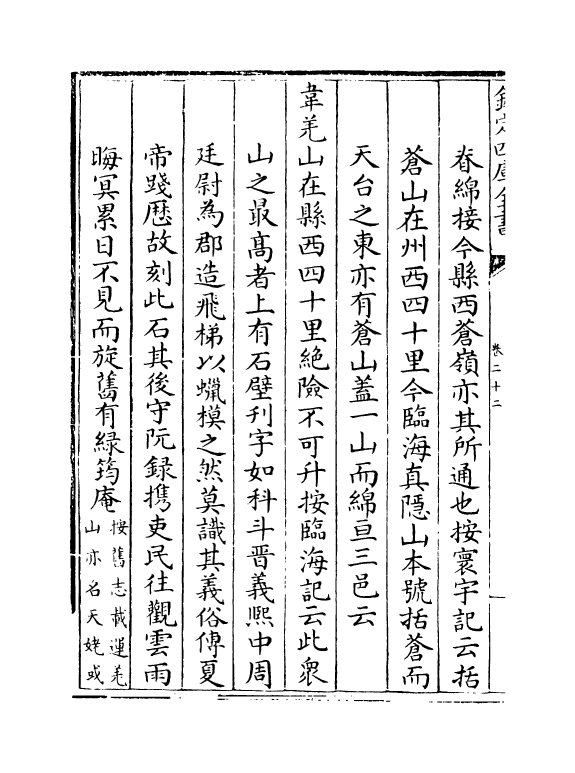 欽定四庫全書
卷二十二
脊綿接今縣西蒼嶺亦其所通也按寰宇記云括
蒼山在州西四十里今臨海真隱山本號括蒼而
天台之東亦有蒼山蓋一山而綿亘三邑云
韋羌山在縣西四十里絶險不可升按臨海記云此衆
山之最髙者上有石壁刋字如科斗晋義熙中周
廷尉為郡造飛梯以蠟模之然莫識其義俗傳夏
帝踐歴故刻此石其後守阮録携吏民往觀雲雨
晦冥累日不見而旋舊有緑筠庵
按舊志載運羌
山亦名天姥或